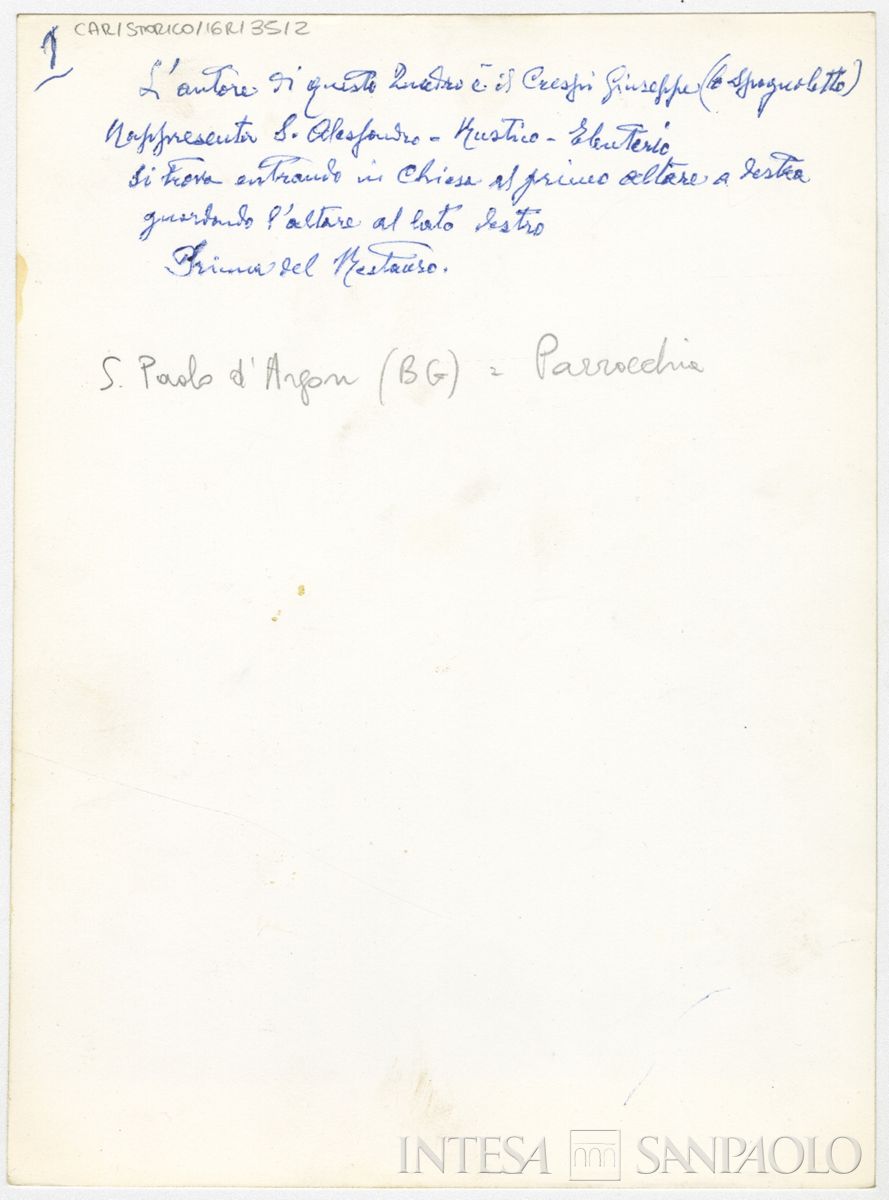 CAR|STORICO/16R|3512
1
L'autore di questo Quadro è il Crespi Giuseppe (lo Spagnoletto)
Rappresenta S. Alessandro - Rustico - Eleuterio
Si trova entrando in Chiesa al primo altare a destra
guardando l'altare al lato destro
Prima del Restauro.
S. Paolo d'Argon (BG) = Parrocchia
INTESA SANPAOLO